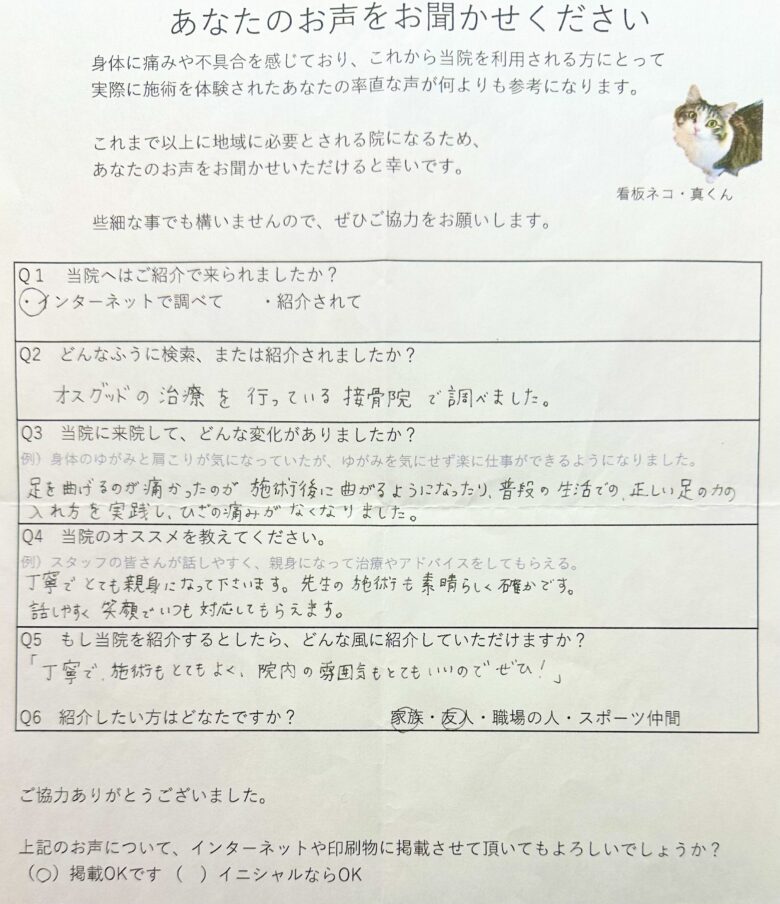 あなたのお声をお聞かせください
身体に痛みや不具合を感じており、これから当院を利用される方にとって
実際に施術を体験されたあなたの率直な声が何よりも参考になります。
これまで以上に地域に必要とされる院になるため、
あなたのお声をお聞かせいただけると幸いです。
看板ネコ・真くん
些細な事でも構いませんので、ぜひご協力をお願いします。
Q1 当院へはご紹介で来られましたか？
・インターネットで調べて ・紹介されて
Q2 どんなふうに検索、または紹介されましたか？
オスグッドの治療を行っている接骨院で調べました。
Q3 当院に来院して、どんな変化がありましたか？
例）身体のゆがみと肩こりが気になっていたが、ゆがみを気にせず楽に仕事ができるようになりました。
足を曲げるのが痛かったのが施術後に曲がるようになったり、普段の生活での、正しい足の力の
入れ方を実践し、ひざの痛みがなくなりました。
Q4 当院のオススメを教えてください。
例）スタッフの皆さんが話しやすく、親身になって治療やアドバイスをしてもらえる。
丁寧でとても親身になって下さいます。先生の施術も素晴らしく確かです。
話しやすく笑顔でいつも対応してもらえます。
Q5 もし当院を紹介するとしたら、どんな風に紹介していただけますか？
「丁寧で、施術もとてもよく、院内の雰囲気もとてもいいのでぜひ！」
Q6 紹介したい方はどなたですか？ 家族・友人・職場の人・スポーツ仲間
ご協力ありがとうございました。
上記のお声について、インターネットや印刷物に掲載させて頂いてもよろしいでしょうか？
（○）掲載OKです （ ）イニシャルならOK